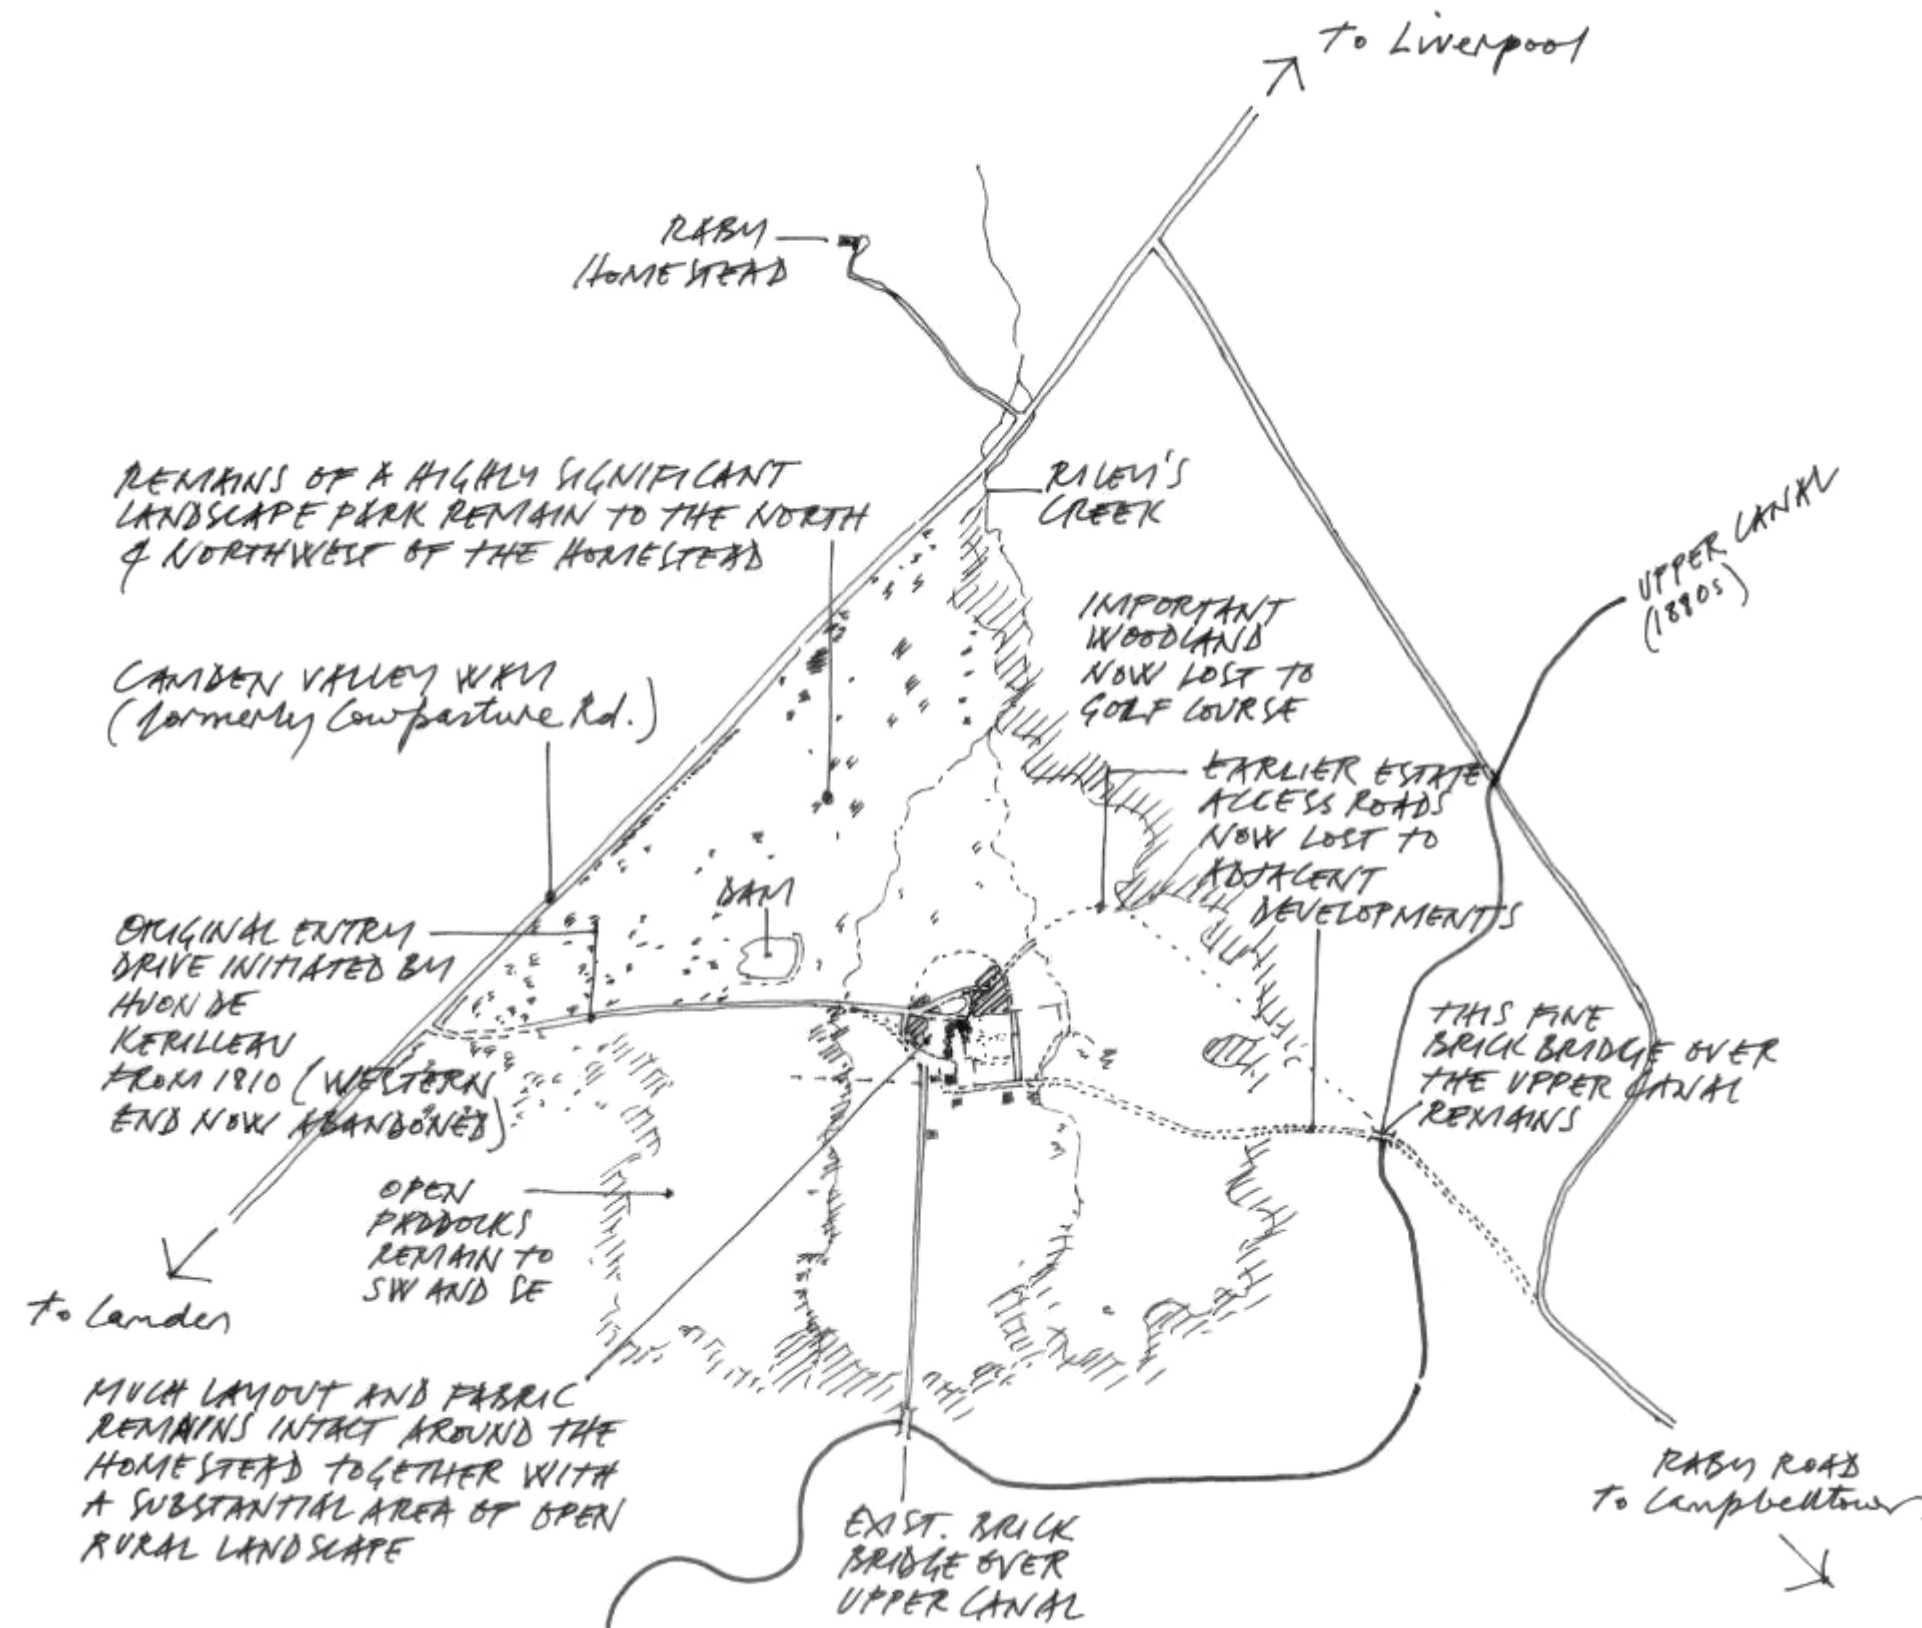 to Liverpool
RABY
HOMESTEAD
REMAINS OF A HIGHLY SIGNIFICANT
LANDSCAPE PARK REMAIN TO THE NORTH
& NORTHWEST OF THE HOMESTEAD
RILEY'S
CREEK
UPPER CANAL
(1880s)
IMPORTANT
WOODLAND
NOW LOST TO
GOLF COURSE
CAMDEN VALLEY WAY
(formerly Cowpasture Rd.)
EARLIER ESTATE
ACCESS ROADS
NOW LOST TO
ADJACENT
DEVELOPMENTS
DAM
ORIGINAL ENTRY
DRIVE INITIATED BY
HUON DE
KERILLEAU
FROM 1810 (WESTERN
END NOW ABANDONED)
THIS FINE
BRICK BRIDGE OVER
THE UPPER CANAL
REMAINS
OPEN
PADDOCKS
REMAIN TO
SW AND SE
to Camden
MUCH LAYOUT AND FABRIC
REMAINS INTACT AROUND THE
HOMESTEAD TOGETHER WITH
A SUBSTANTIAL AREA OF OPEN
RURAL LANDSCAPE
EXIST. BRICK
BRIDGE OVER
UPPER CANAL
RABY ROAD
to Campbelltown